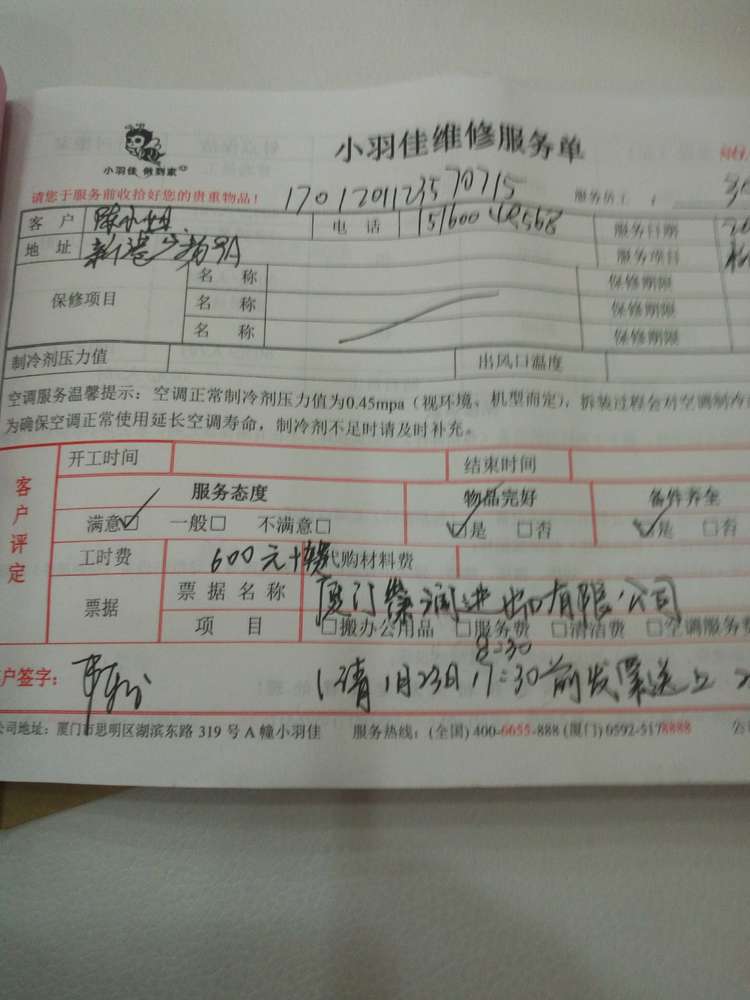 小羽佳维修服务单
小羽佳 做到家
请您于服务前收拾好您的贵重物品！ 服务员工：
客户 陈小姐 电话 服务日期
地址 新港广场 服务项目
保修项目 名称 保修期限
名称 保修期限
名称 保修期限
制冷剂压力值 出风口温度
空调服务温馨提示：空调正常制冷剂压力值为0.45mpa（视环境、机型而定），拆装过程会对空调制冷
为确保空调正常使用延长空调寿命，制冷剂不足时请及时补充。
客户评定 开工时间 结束时间
服务态度 物品完好 备件齐全
满意☑ 一般□ 不满意□ ☑是 □否 ☑是 □否
工时费 600元 代购材料费
票据 票据名称 厦门 润进出口有限公司
项目 □搬办公用品 □服务费 □清洁费 □空调服务费
8:30
户签字： 请1月23日17:30前发票送上
公司地址：厦门市思明区湖滨东路 319 号 A 幢小羽佳 服务热线：(全国) 400-6655-888 (厦门) 0592-5178888